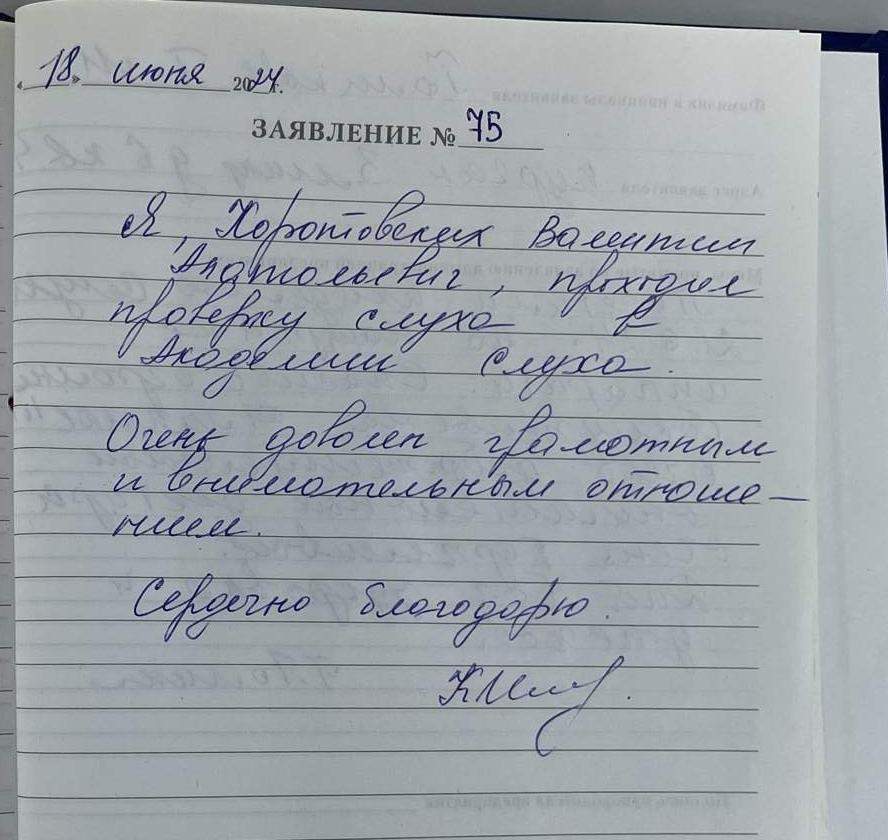 «18» июня 2024г.
ЗАЯВЛЕНИЕ № 75
Я, Коротовских Валентин
Анатольевич, проходил
проверку слуха в
Академии слуха.
Очень доволен грамотным
и внимательным отноше-
нием.
Сердечно благодарю.